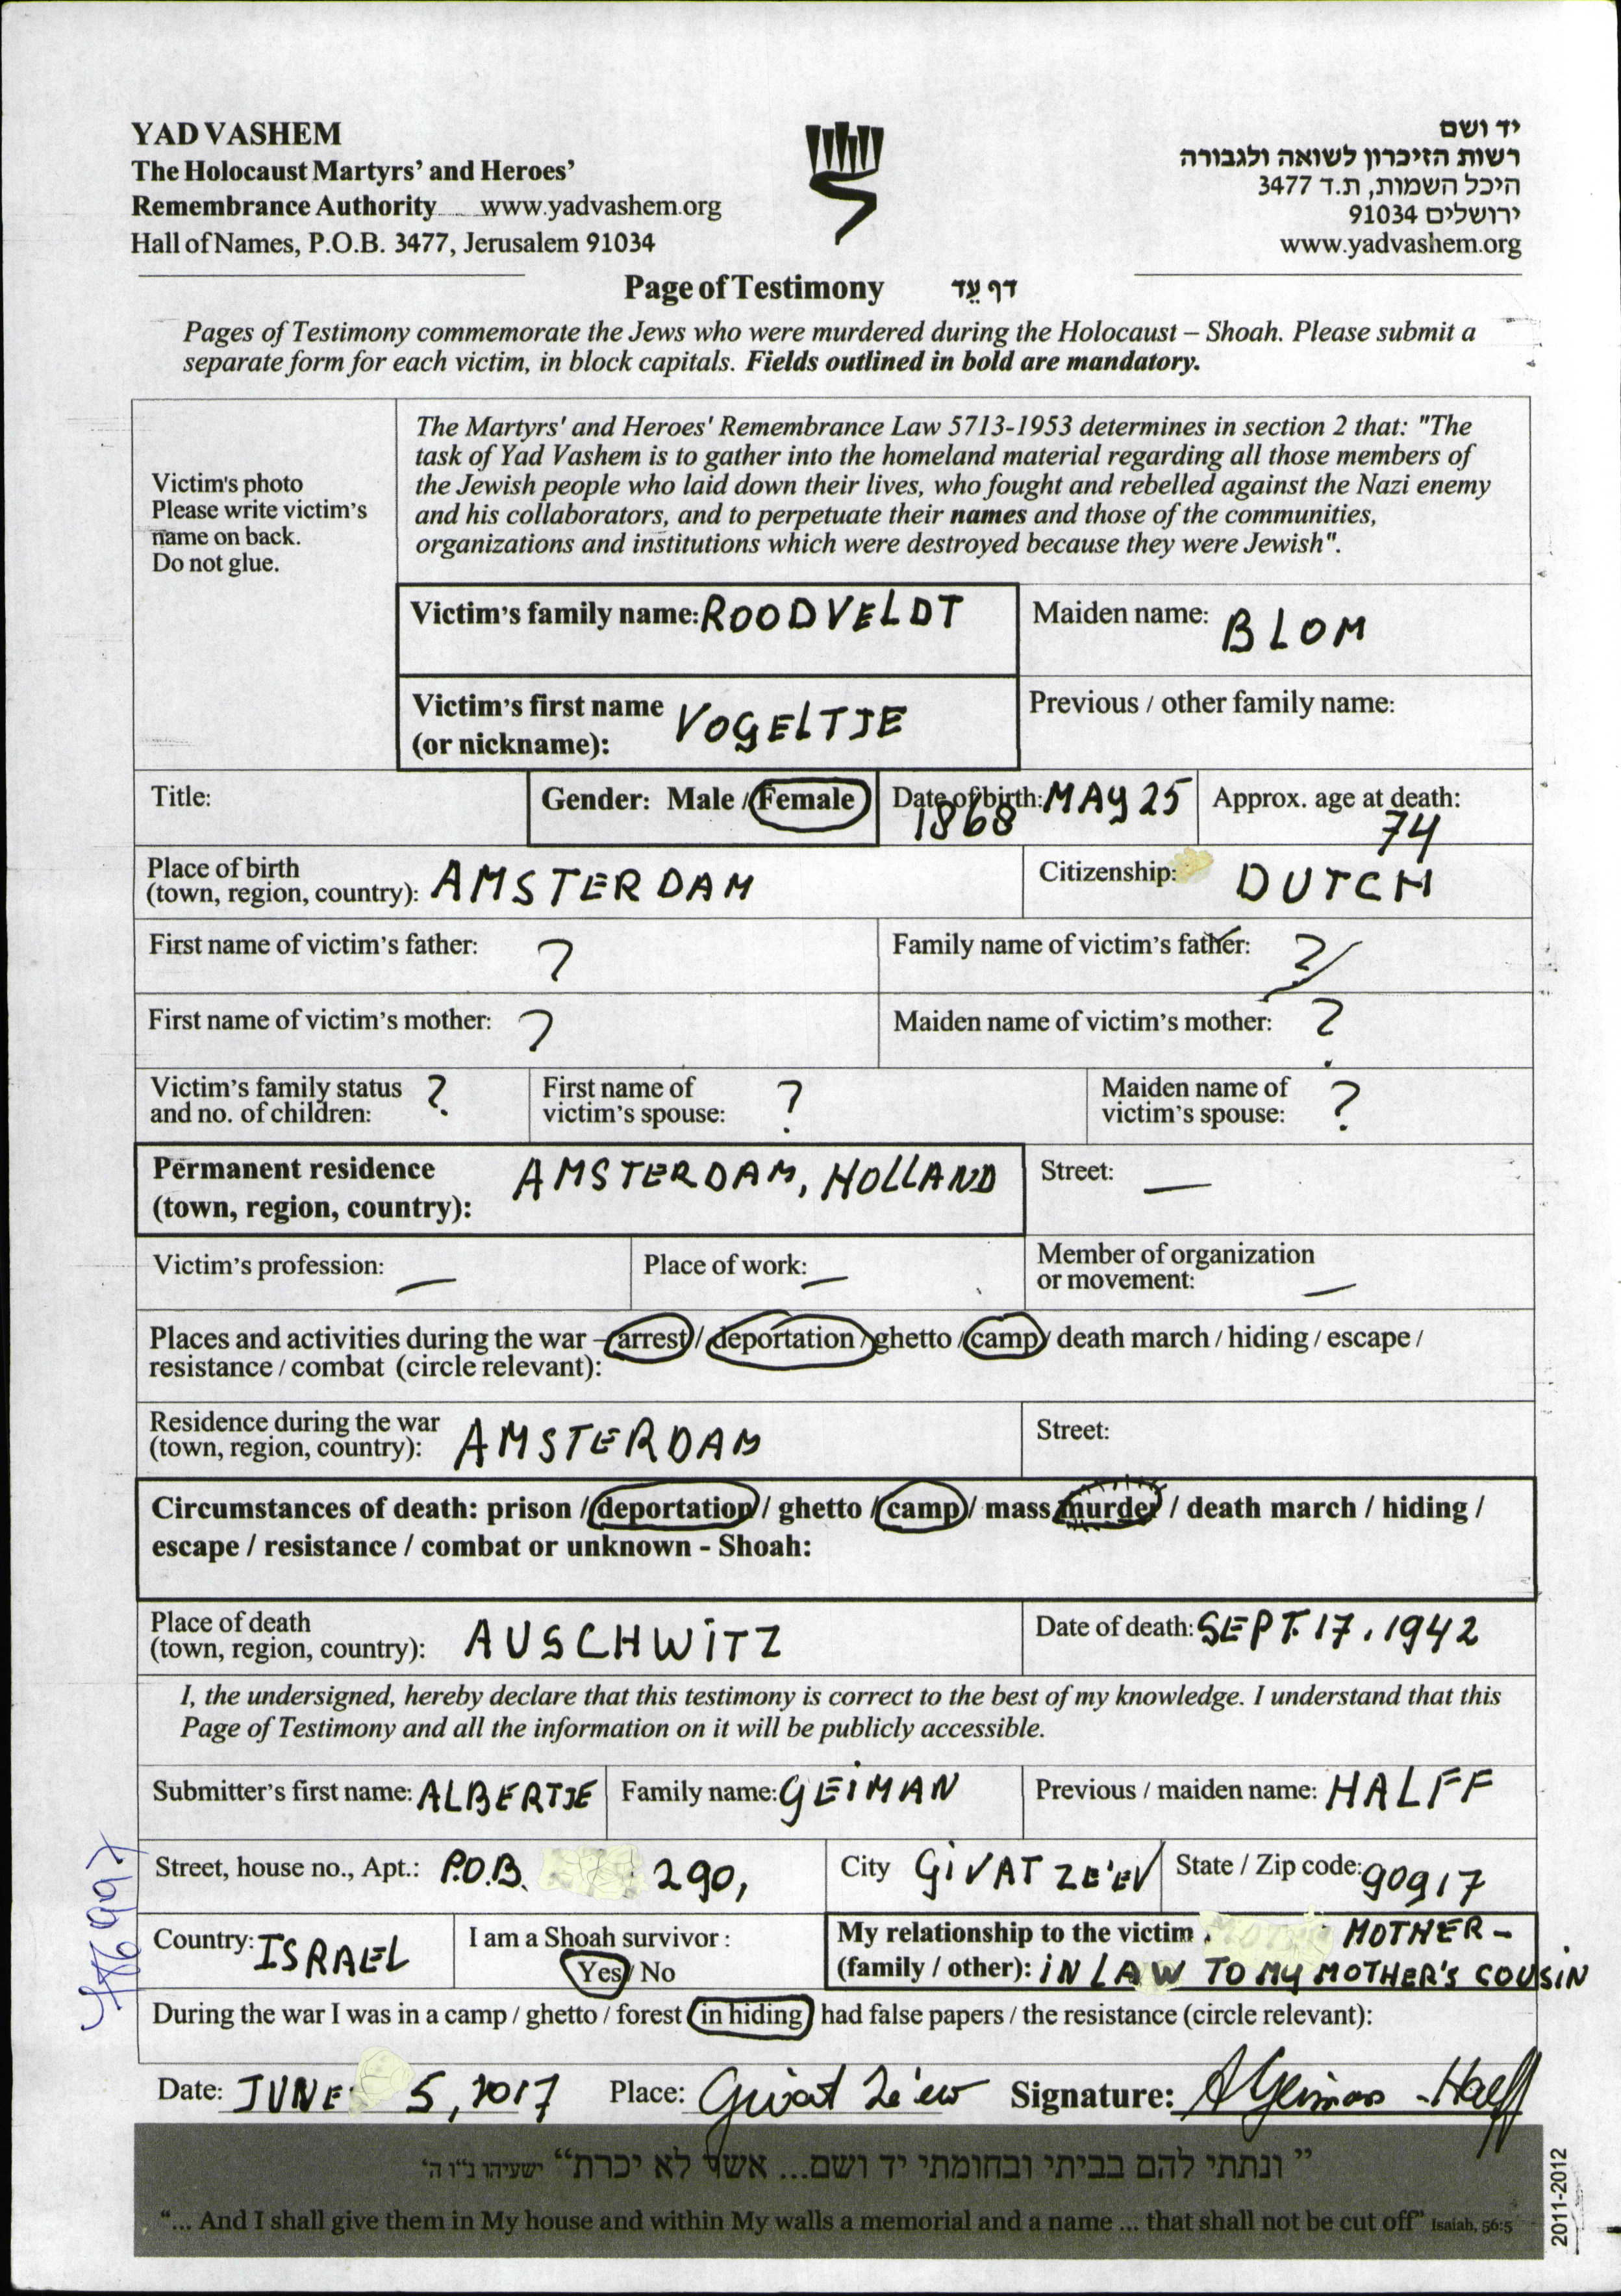 YAD VASHEM
The Holocaust Martyrs' and Heroes'
Remembrance Authority www.yadvashem.org
Hall of Names, P.O.B. 3477, Jerusalem 91034
יד ושם
רשות הזיכרון לשואה ולגבורה
היכל השמות, ת.ד 3477
ירושלים 91034
www.yadvashem.org
Page of Testimony דף עֵד
Pages of Testimony commemorate the Jews who were murdered during the Holocaust – Shoah. Please submit a
separate form for each victim, in block capitals. Fields outlined in bold are mandatory.
Victim's photo
Please write victim's
name on back.
Do not glue.
The Martyrs' and Heroes' Remembrance Law 5713-1953 determines in section 2 that: "The
task of Yad Vashem is to gather into the homeland material regarding all those members of
the Jewish people who laid down their lives, who fought and rebelled against the Nazi enemy
and his collaborators, and to perpetuate their names and those of the communities,
organizations and institutions which were destroyed because they were Jewish".
Victim's family name: ROODVELDT
Maiden name: BLOM
Victim's first name
(or nickname): VOGELTJE
Previous / other family name:
Title:
Gender: Male / Female
Date of birth: MAY 25
1868
Approx. age at death:
74
Place of birth
(town, region, country): AMSTERDAM
Citizenship: DUTCH
First name of victim's father: ?
Family name of victim's father: ?
First name of victim's mother: ?
Maiden name of victim's mother: ?
Victim's family status
and no. of children: ?
First name of
victim's spouse: ?
Maiden name of
victim's spouse: ?
Permanent residence
(town, region, country): AMSTERDAM, HOLLAND
Street: —
Victim's profession: —
Place of work: —
Member of organization
or movement: —
Places and activities during the war – arrest / deportation / ghetto / camp / death march / hiding / escape /
resistance / combat (circle relevant):
Residence during the war
(town, region, country): AMSTERDAM
Street:
Circumstances of death: prison / deportation / ghetto / camp / mass murder / death march / hiding /
escape / resistance / combat or unknown - Shoah:
Place of death
(town, region, country): AUSCHWITZ
Date of death: SEPT. 17. 1942
I, the undersigned, hereby declare that this testimony is correct to the best of my knowledge. I understand that this
Page of Testimony and all the information on it will be publicly accessible.
Submitter's first name: ALBERTJE
Family name: GEIMAN
Previous / maiden name: HALFF
Street, house no., Apt.: P.O.B. 290,
City GIVAT ZE'EV
State / Zip code: 90917
Country: ISRAEL
I am a Shoah survivor :
Yes / No
My relationship to the victim MOTHER -
(family / other): IN LAW TO MY MOTHER'S COUSIN
During the war I was in a camp / ghetto / forest / in hiding / had false papers / the resistance (circle relevant):
Date: JUNE 5, 2017 Place: Givat Ze'ew Signature: A Geiman - Halff
” ונתתי להם בביתי ובחומתי יד ושם... אשר לא יכרת“ ישעיהו נ"ו ה'
“... And I shall give them in My house and within My walls a memorial and a name ... that shall not be cut off” Isaiah, 56:5
2011-2012